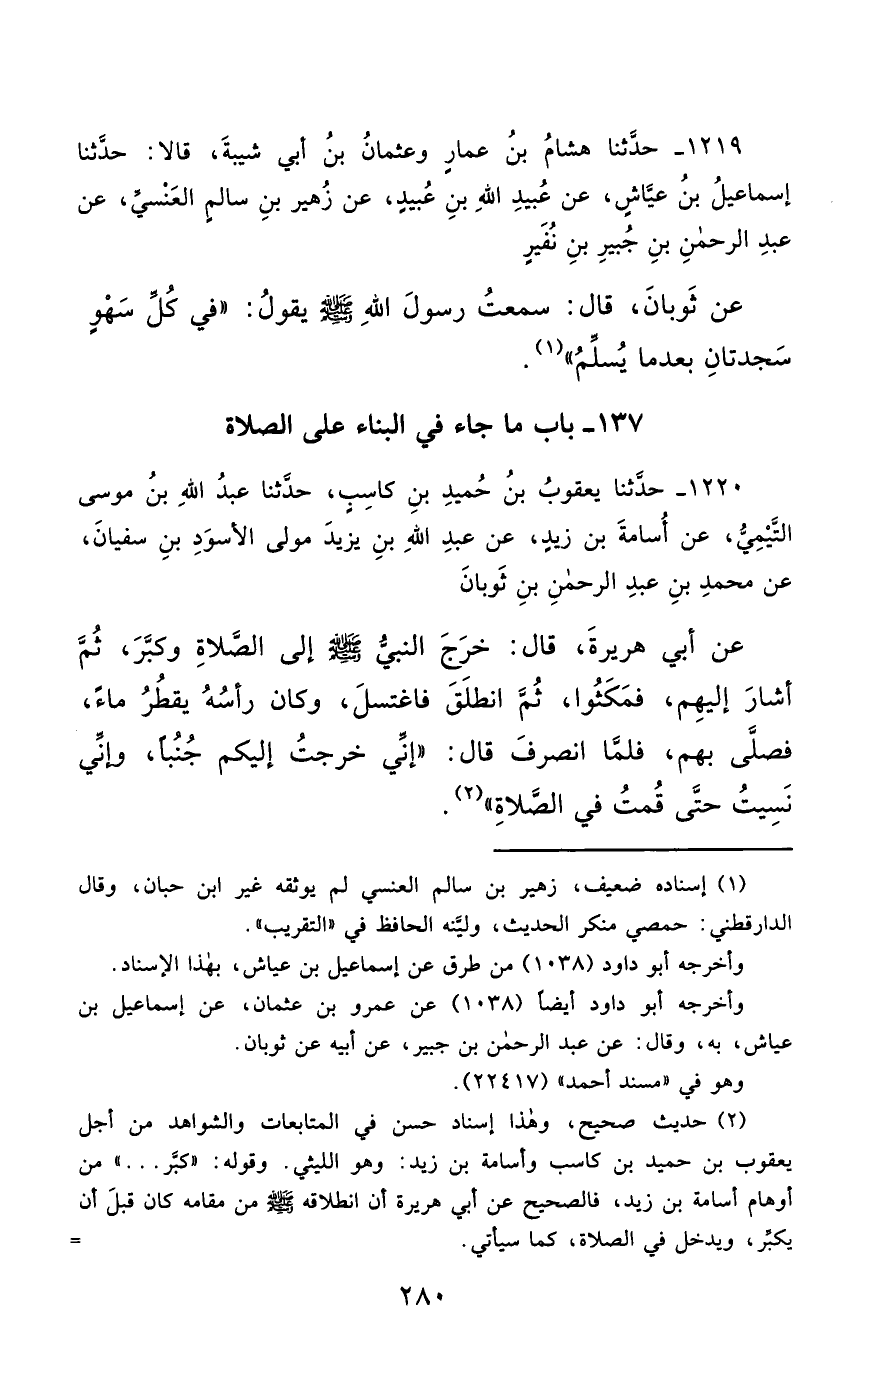 ١٢١٩ـ حدَّثنا هشامُ بنُ عمارٍ وعثمانُ بنُ أبي شيبةَ، قالا: حدَّثنا
إسماعيلُ بنُ عيَّاشٍ، عن عُبيدِ اللهِ بنِ عُبيدٍ، عن زُهير بنِ سالمٍ العَنْسيِّ، عن
عبدِ الرحمٰنِ بنِ جُبيرِ بنِ نُفَيرٍ
عن ثَوبانَ، قال: سمعتُ رسولَ اللهِ ﷺ يقولُ: «في كُلِّ سَهْوٍ
سَجدتانِ بعدما يُسلِّمُ»(١).
١٣٧ـ باب ما جاء في البناء على الصلاة
١٢٢٠ـ حدَّثنا يعقوبُ بنُ حُميدِ بنِ كاسِبٍ، حدَّثنا عبدُ اللهِ بنُ موسى
التَّيْمِيُّ، عن أُسامةَ بن زيدٍ، عن عبدِ اللهِ بنِ يزيدَ مولى الأسوَدِ بنِ سفيانَ،
عن محمدِ بنِ عبدِ الرحمٰنِ بنِ ثَوبانَ
عن أبي هريرةَ، قال: خرَجَ النبيُّ ﷺ إلى الصَّلاةِ وكبَّرَ، ثُمَّ
أشارَ إليهِم، فمَكَثُوا، ثُمَّ انطلَقَ فاغتسلَ، وكان رأسُهُ يقطُرُ ماءً،
فصلَّى بهم، فلمَّا انصرفَ قال: «إنِّي خرجتُ إليكم جُنُباً، وإنِّي
نَسِيتُ حتَّى قُمتُ في الصَّلاةِ»(٢).
(١) إسناده ضعيف، زهير بن سالم العنسي لم يوثقه غير ابن حبان، وقال
الدارقطني: حمصي منكر الحديث، وليَّنه الحافظ في «التقريب».
وأخرجه أبو داود (١٠٣٨) من طرق عن إسماعيل بن عياش، بهٰذا الإسناد.
وأخرجه أبو داود أيضاً (١٠٣٨) عن عمرو بن عثمان، عن إسماعيل بن
عياش، به، وقال: عن عبد الرحمٰن بن جبير، عن أبيه عن ثوبان.
وهو في «مسند أحمد» (٢٢٤١٧).
(٢) حديث صحيح، وهٰذا إسناد حسن في المتابعات والشواهد من أجل
يعقوب بن حميد بن كاسب وأسامة بن زيد: وهو الليثي. وقوله: «كبَّر...» من
أوهام أسامة بن زيد، فالصحيح عن أبي هريرة أن انطلاقه ﷺ من مقامه كان قبلَ أن
يكبِّر، ويدخل في الصلاة، كما سيأتي. =
٢٨٠